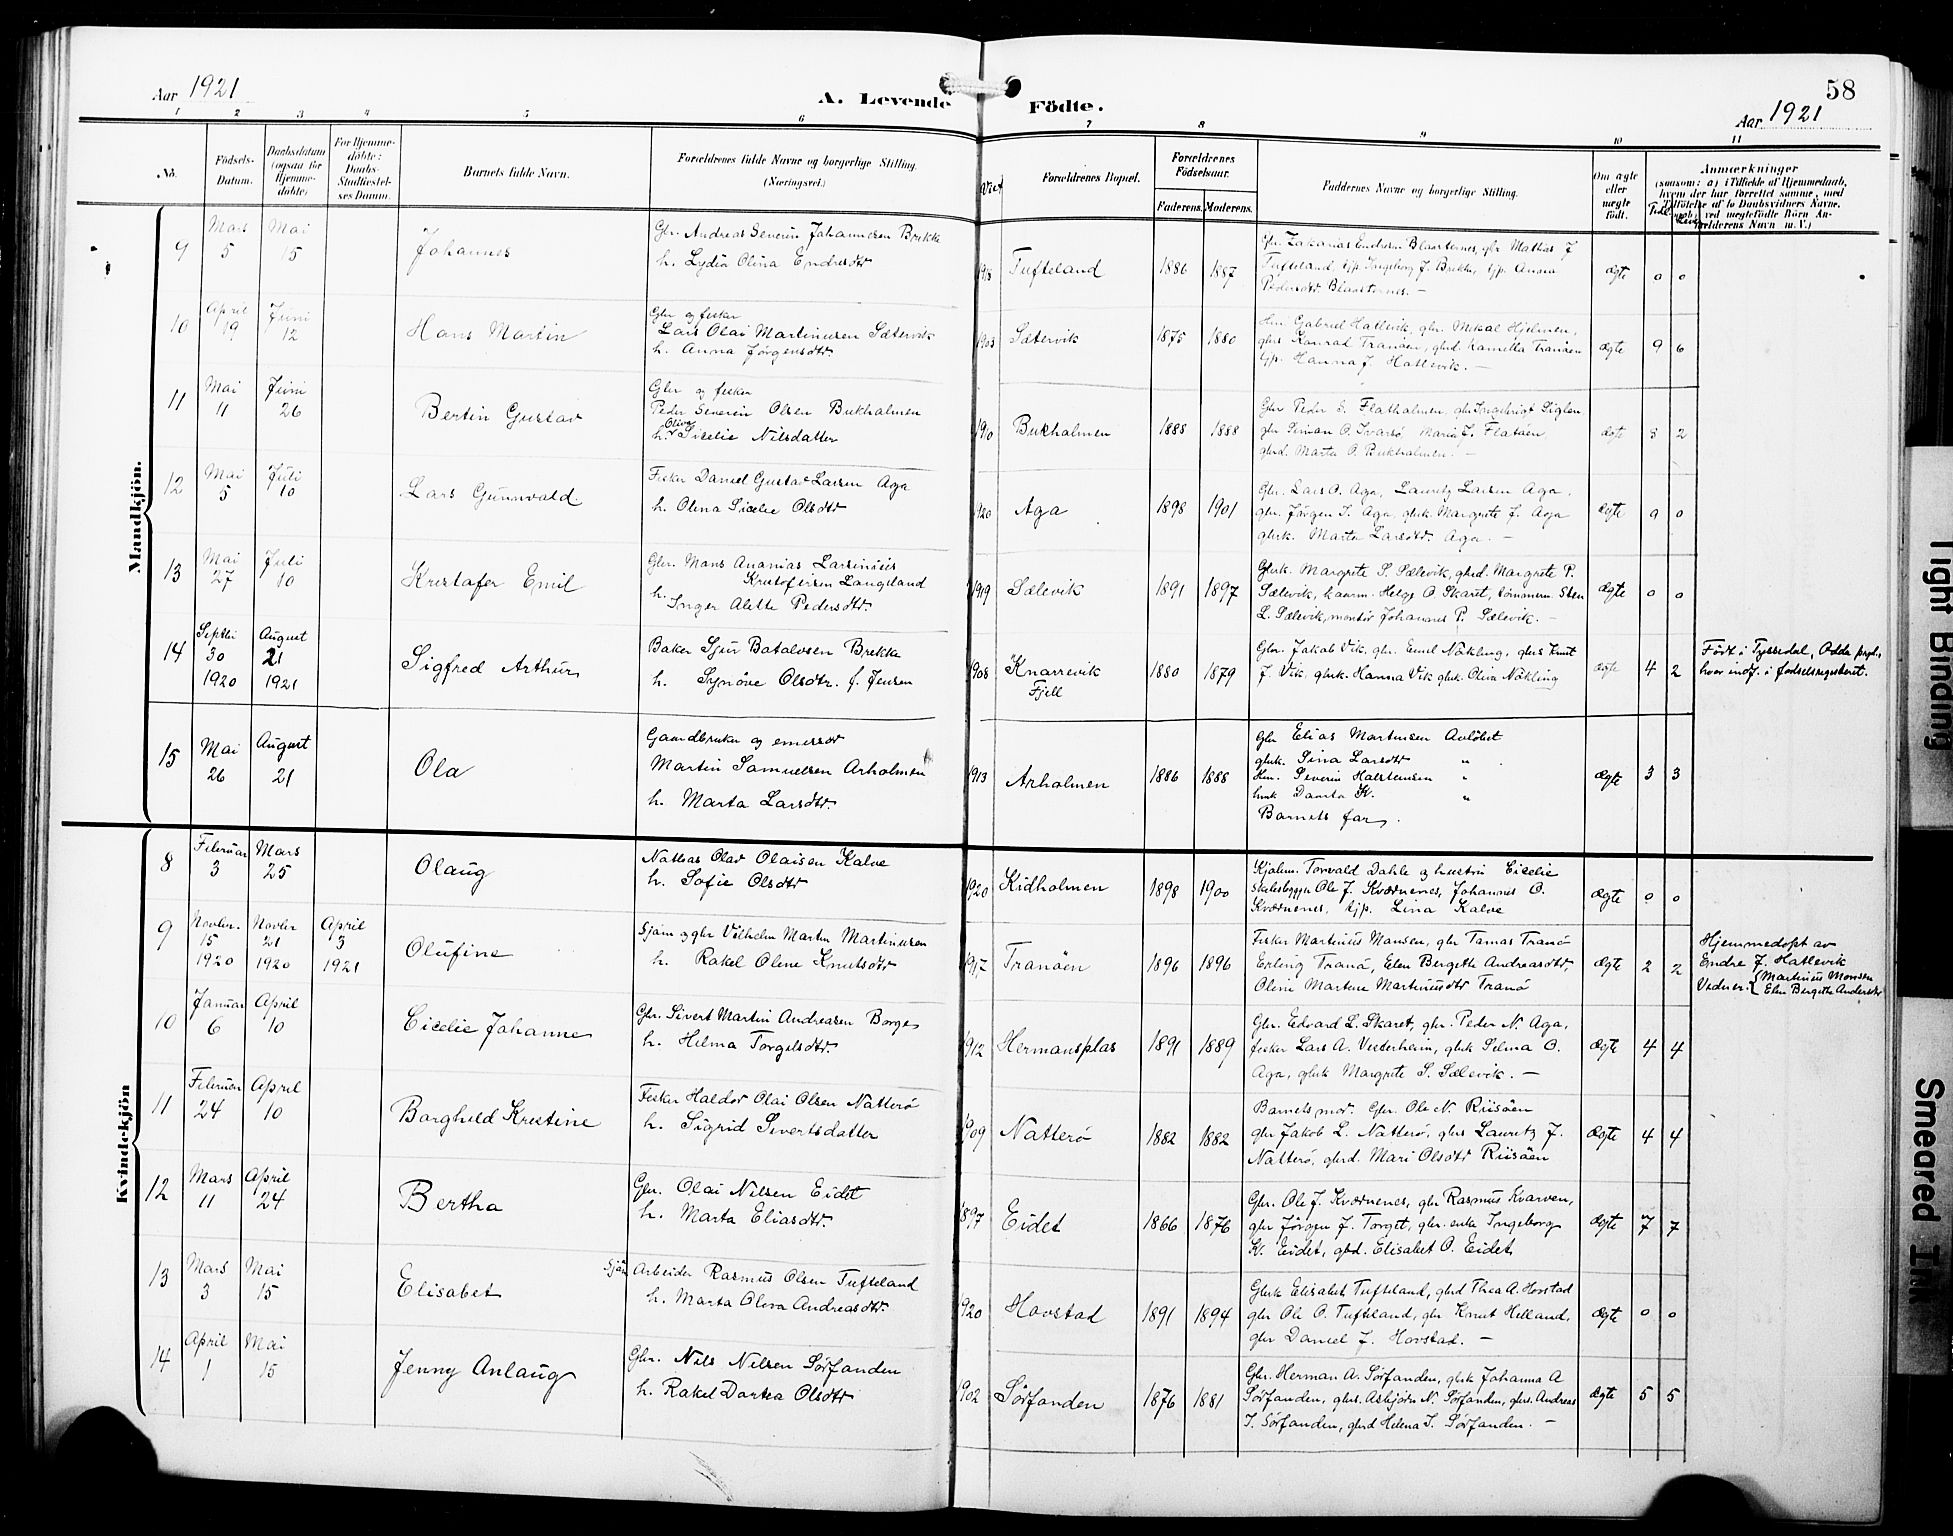 Aar 1921
A. Levende
Födte.
58
Aar 1921
1 2 3 4 5 6 7 8 9 10 11
No.
Födsels-
Datum.
Daabsdatum
(ogsaa for
Hjemme-
döbte)
For Hjemme-
döbte:
Daabs-
Stadfæstel-
ses Datum.
Barnets fulde Navn.
Forældrenes fulde Navne og borgerlige Stilling.
(Næringsvei.)
Viet
Forældrenes Bopæl.
Forældrenes
Födselsaar.
Faderens. Moderens.
Faddernes Navne og borgerlige Stilling.
Om ægte
eller
uægte
födt.
Anmærkninger
(saasom: a) i Tilfælde af Hjemmedaab,
hvem der har forrettet samme, med
Tilföielse af to Daabsvidners Navne,
b) ved uægtefödte Börn An-
Forælderens Navn m. V.)
Mandkjön.
9
Mars
5
Mai
15
Johannes
Gbr. Andreas Severin Johannesen Brekke
h. Lydia Olina Endresdtr
1918
Tufteland
1886
1887
Gbr Zakarias Endresen Blaasternes, gbr Mathias J
Tufteland, tjp. Ingeborg J. Brekke, tjp. Anna
Pedersdtr. Blaasternes. –
ægte
0 0
10
April
19
Juni
12
Hans Martin
Gbr og fisker
Lars Olai Martinusen Sætervik
h. Anna Jørgensdtr
1903
Sætervik
1875
1880
Hm. Gabriel Hatlevik, gbr. Mikal Hjelmen,
gbrs Konrad Tranöen, gbrd. Kamilla Tranöen
tjp. Hanna J. Hatlevik. –
ægte
9 6
11
Mai
11
Juni
26
Bertin Gustav
Gbr og fisker
Peder Severin Olsen Bukholmen
Oliva
h. Sicelie Nilsdatter
1910
Bukholmen
1888
1888
Gbr Peder S. Flatholmen, gbr Ingebrigt Siglen
gbr Simon O. Ivarsö, Maria J. Flatöen,
gbrd. Marta O. Bukholmen. –
ægte
3 2
12
Mai
5
Juli
10
Lars Gunnvald.
Fisker Daniel Gustav Larsen Aga
h. Olena Sicelie Olsdtr
1920
Aga
1898
1901
Gbr. Lars O. Aga, Lauritz Larsen Aga,
gbr. Jørgen I. Aga, gbrk. Margrete J. Aga
gbrk. Marta Larsdtr. Aga. –
ægte
0 0
13
Mai
27
Juli
10
Kristofer Emil
Gbr. Mons Ananias Larsinius
Kristofersen Langeland
h. Inger Alette Pedersdtr.
1919
Sælevik
1891
1897
Gbrk. Margrete S. Sælevik, gbrd. Margrete P.
Sælevik, haarm. Helge O. Skaret, tömmerm. Sten
L. Sælevik, montör Johannes P. Sælevik. –
ægte
0 0
14
Septbr
30
1920
August
21
1921
Sigfred Arthur
Baker Sjur Batolvsen Brekke
h. Synöve Olsdtr. f. Jensen
1908
Knarrevik
Fjell
1880
1879
Gbr. Jakob Vik, gbr. Emil Nökling, gbrs Knut
J. Vik, gbrk. Hanna Vik gbrk. Oliva Nökling
ægte
4 2
Född i Tyssedal, Odda prgd.,
hvor indf. i fødselsregisteret.
15
Mai
26
August
21
Ola
Gaardbruker og emissær
Martin Samuelsen Arholmen
h. Marta Larsdtr.
1913
Arholmen
1886
1888
Gbr Elias Martinsen Avlöbet
gbrk. Sina Larsdtr "
Hm. Severin Halstensen "
hmk Daarta K. "
Barnets far.
ægte
3 3
Kvindekjön
8
Februar
3
Mars
25
Olaug
Mathias Olav Olaisen Kalve
h. Sofie Olsdtr
1920
Kidholmen
1898
1900
Kjöbm. Torvald Dahle og hustru Cicelie
skibsbyggr Ole J. Kværnenes, Johannes O.
Kværnenes, tjp. Lina Kalve
ægte
0 0
9
Novbr.
15
1920
Novbr
21
1920
April
3
1921
Olufine
Sjöm og gbr Vilhelm Martin Martinusen
h. Rakel Oline Knutsdtr
1917
Tranöen
1896
1896
Fisker Martinius Monsen, gbr Tomas Tranö
Erling Tranö, Elen Bergette Andreasdtr,
Oline Martine Martinusdtr Tranö
ægte
2 2
Hjemmedöpt av
Endre J. Hatlevik
Vidner: Martinius Monsen
Elen Bergitte Andersdtr
10
Januar
6
April
10
Cicelie Johanne
Gbr. Sivert Martin Andreasen Borge
h. Helma Torgelsdtr.
1912
Hermansplas
1891
1889
Gbr. Edvard L. Skaret, gbr. Peder N. Aga,
fisker Lars A. Vesterheim, gbrk Selma O.
Aga, gbrk Margrete S. Sælevik. –
ægte
4 4
11
Februar
24
April
10
Borghild Kristine
Fisker Haldor Olai Olsen Natterö
h. Sigrid Sivertsdatter
1909
Natterö
1882
1882
Barnets mor. Gbr. Ole N. Risöen
gbr Jakob L. Natterö, gbrs Lauritz J.
Natterö, gbrd. Mari Olsdtr Risöen
ægte
4 4
12
Mars
11
April
24
Bertha
Gbr. Olai Nilsen Eidet
h. Marta Eliasdtr.
1897
Eidet
1866
1876
Gbr. Ole J. Kværnenes, gbr Rasmus Kvarven,
gbr Jörgen J. Torget, gbr. enke Ingeborg
K. Eidet, gbd. Elisabet O. Eidet.
ægte
7 7
13
Mars
3
Mai
15
Elisabet
Arbeider Rasmus Olsen Tufteland
h. Marta Oliva Andreasdtr.
1920
Hovstad
1891
1894
Gbrk Elisabet Tufteland, gbrd Thea A. Hovstad
gbr Ole O. Tufteland, gbr Knut Helland,
gbr Daniel J. Hovstad. –
ægte
0 0
14
April
1
Mai
15
Jenny Anlaug
Gbr. Nils Nilsen Sörfanden
h. Rakel Dortea Olsdtr
1902
Sörfanden
1876
1881
Gbr. Herman A. Sörfanden, gbrk Johanna A
Sörfanden, gbrs. Asbjörn N. Sörfanden, gbrs. Andreas
I. Sörfanden, gbrd Helena I. Sörfanden. –
ægte
5 5
Tight Binding
Smeared Ink